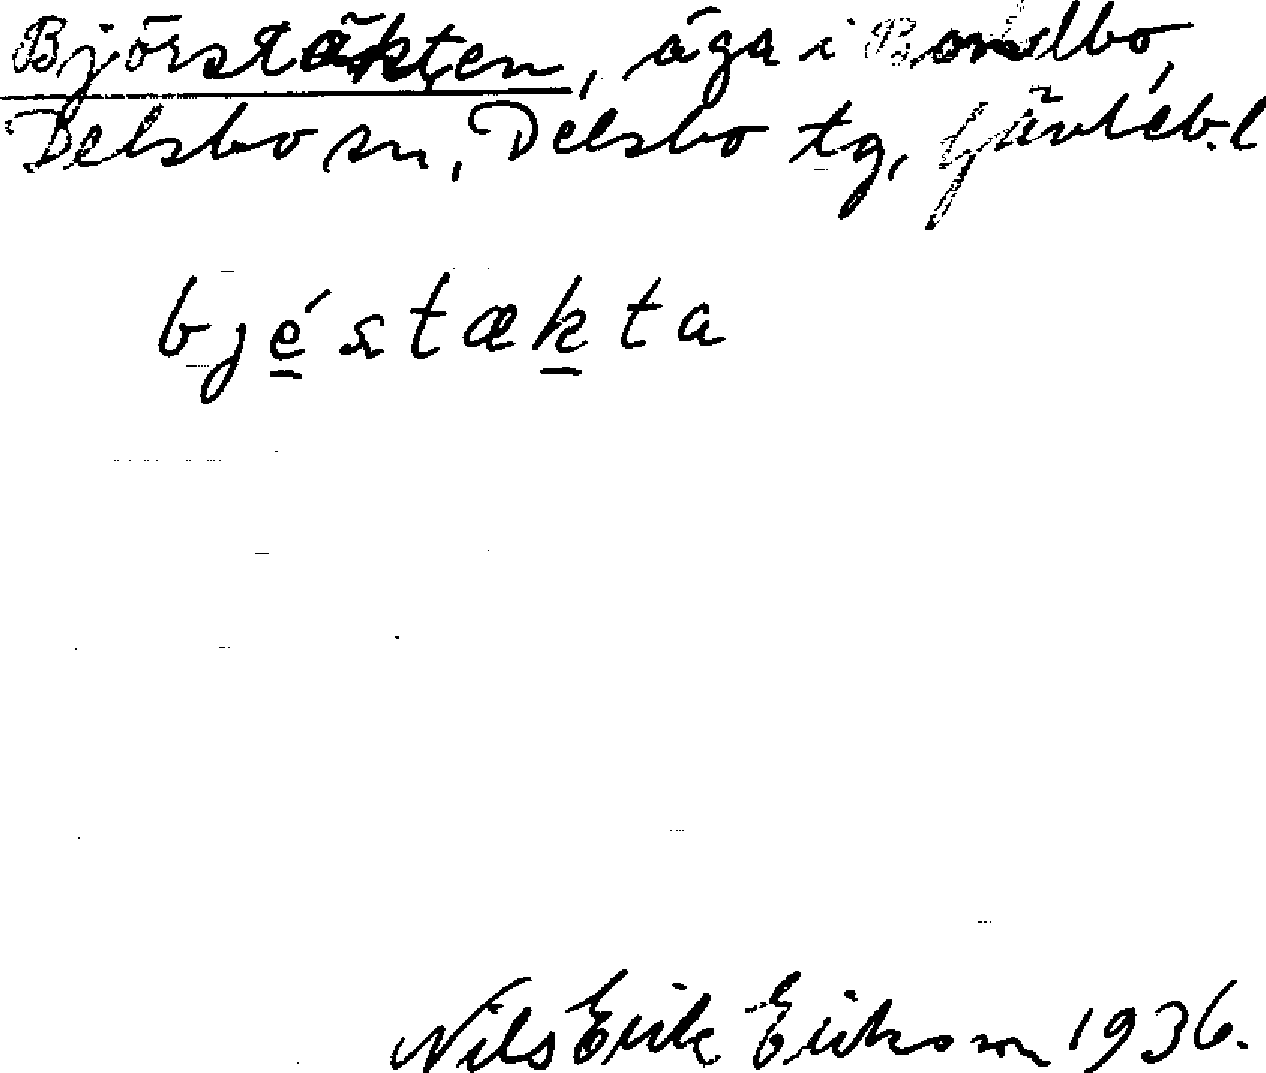 Björstäkten, äga i Bondbo,
Delsbo sn, Delsbo tg, Gävleb.l
bjéstækta
Nils Erik Eriksson 1936.